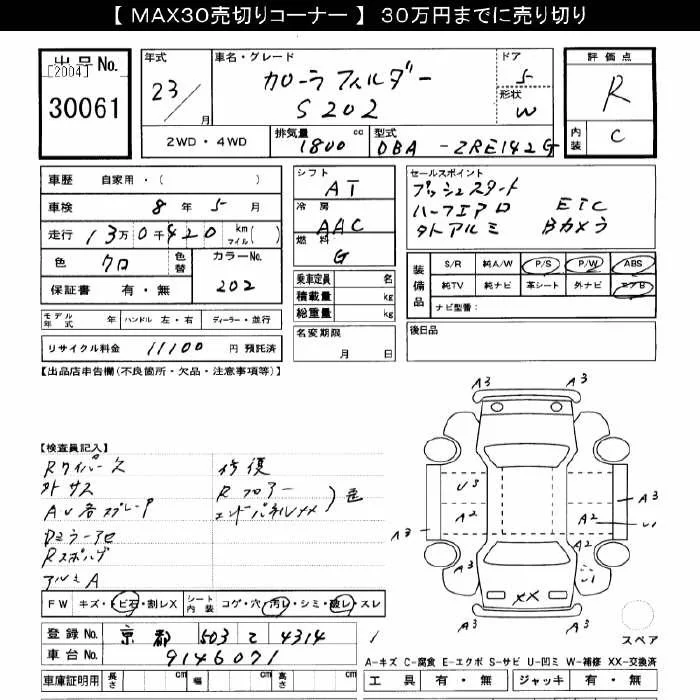 【 MAX30売切りコーナー 】 30万円までに売り切り
出品No.
[2004]
30061
年式 車名・グレード ドア 評価点
23/ 月 カローラ フィルダー 5 R
S202 形状 W
2WD・4WD 排気量 1800 cc 型式 DBA -ZRE142G 内装 C
車歴 自家用・( )
車検 8年 5月
走行 13万0千420 km マイル( )
色 クロ 色替 カラーNo. 202
保証書 有・無
モデル年式 年 ハンドル 左・右 ディーラー・並行
リサイクル料金 11100 円 預託済
シフト AT
冷房 AAC
燃料 G
乗車定員 名
積載量 kg
総重量 kg
名変期限
月 日
セールスポイント
プッシュスタート
ハーフエアロ ETC
外アルミ Bカメラ
装備品 S/R 純A/W P/S P/W ABS
純TV 純ナビ 革シート 外ナビ エアB
ナビ型番:
後日品
【出品店申告欄(不良箇所・欠品・注意事項等)】
【検査員記入】
Rワイパー欠 修復
外サス Rフロアー
AV各スプレーP エンドパネルXX 色
Dミラー
Rスポ
アルミA
FW キズ・トビ石・割レX シート内装 コゲ・穴・汚レ・シミ・破レ・スレ
登録No. 京都 503 て 4314
車台No. 9146071
車庫証明用 長さ cm 幅 cm 高さ cm
A3 A3
A3 A3
U3
A2 A2 U1
A3 A2
U1
XX
A3 A3
スペア
A-キズ C-腐食 E-エクボ S-サビ U-凹ミ W-補修 XX-交換済
工具 有・無 ジャッキ 有・無